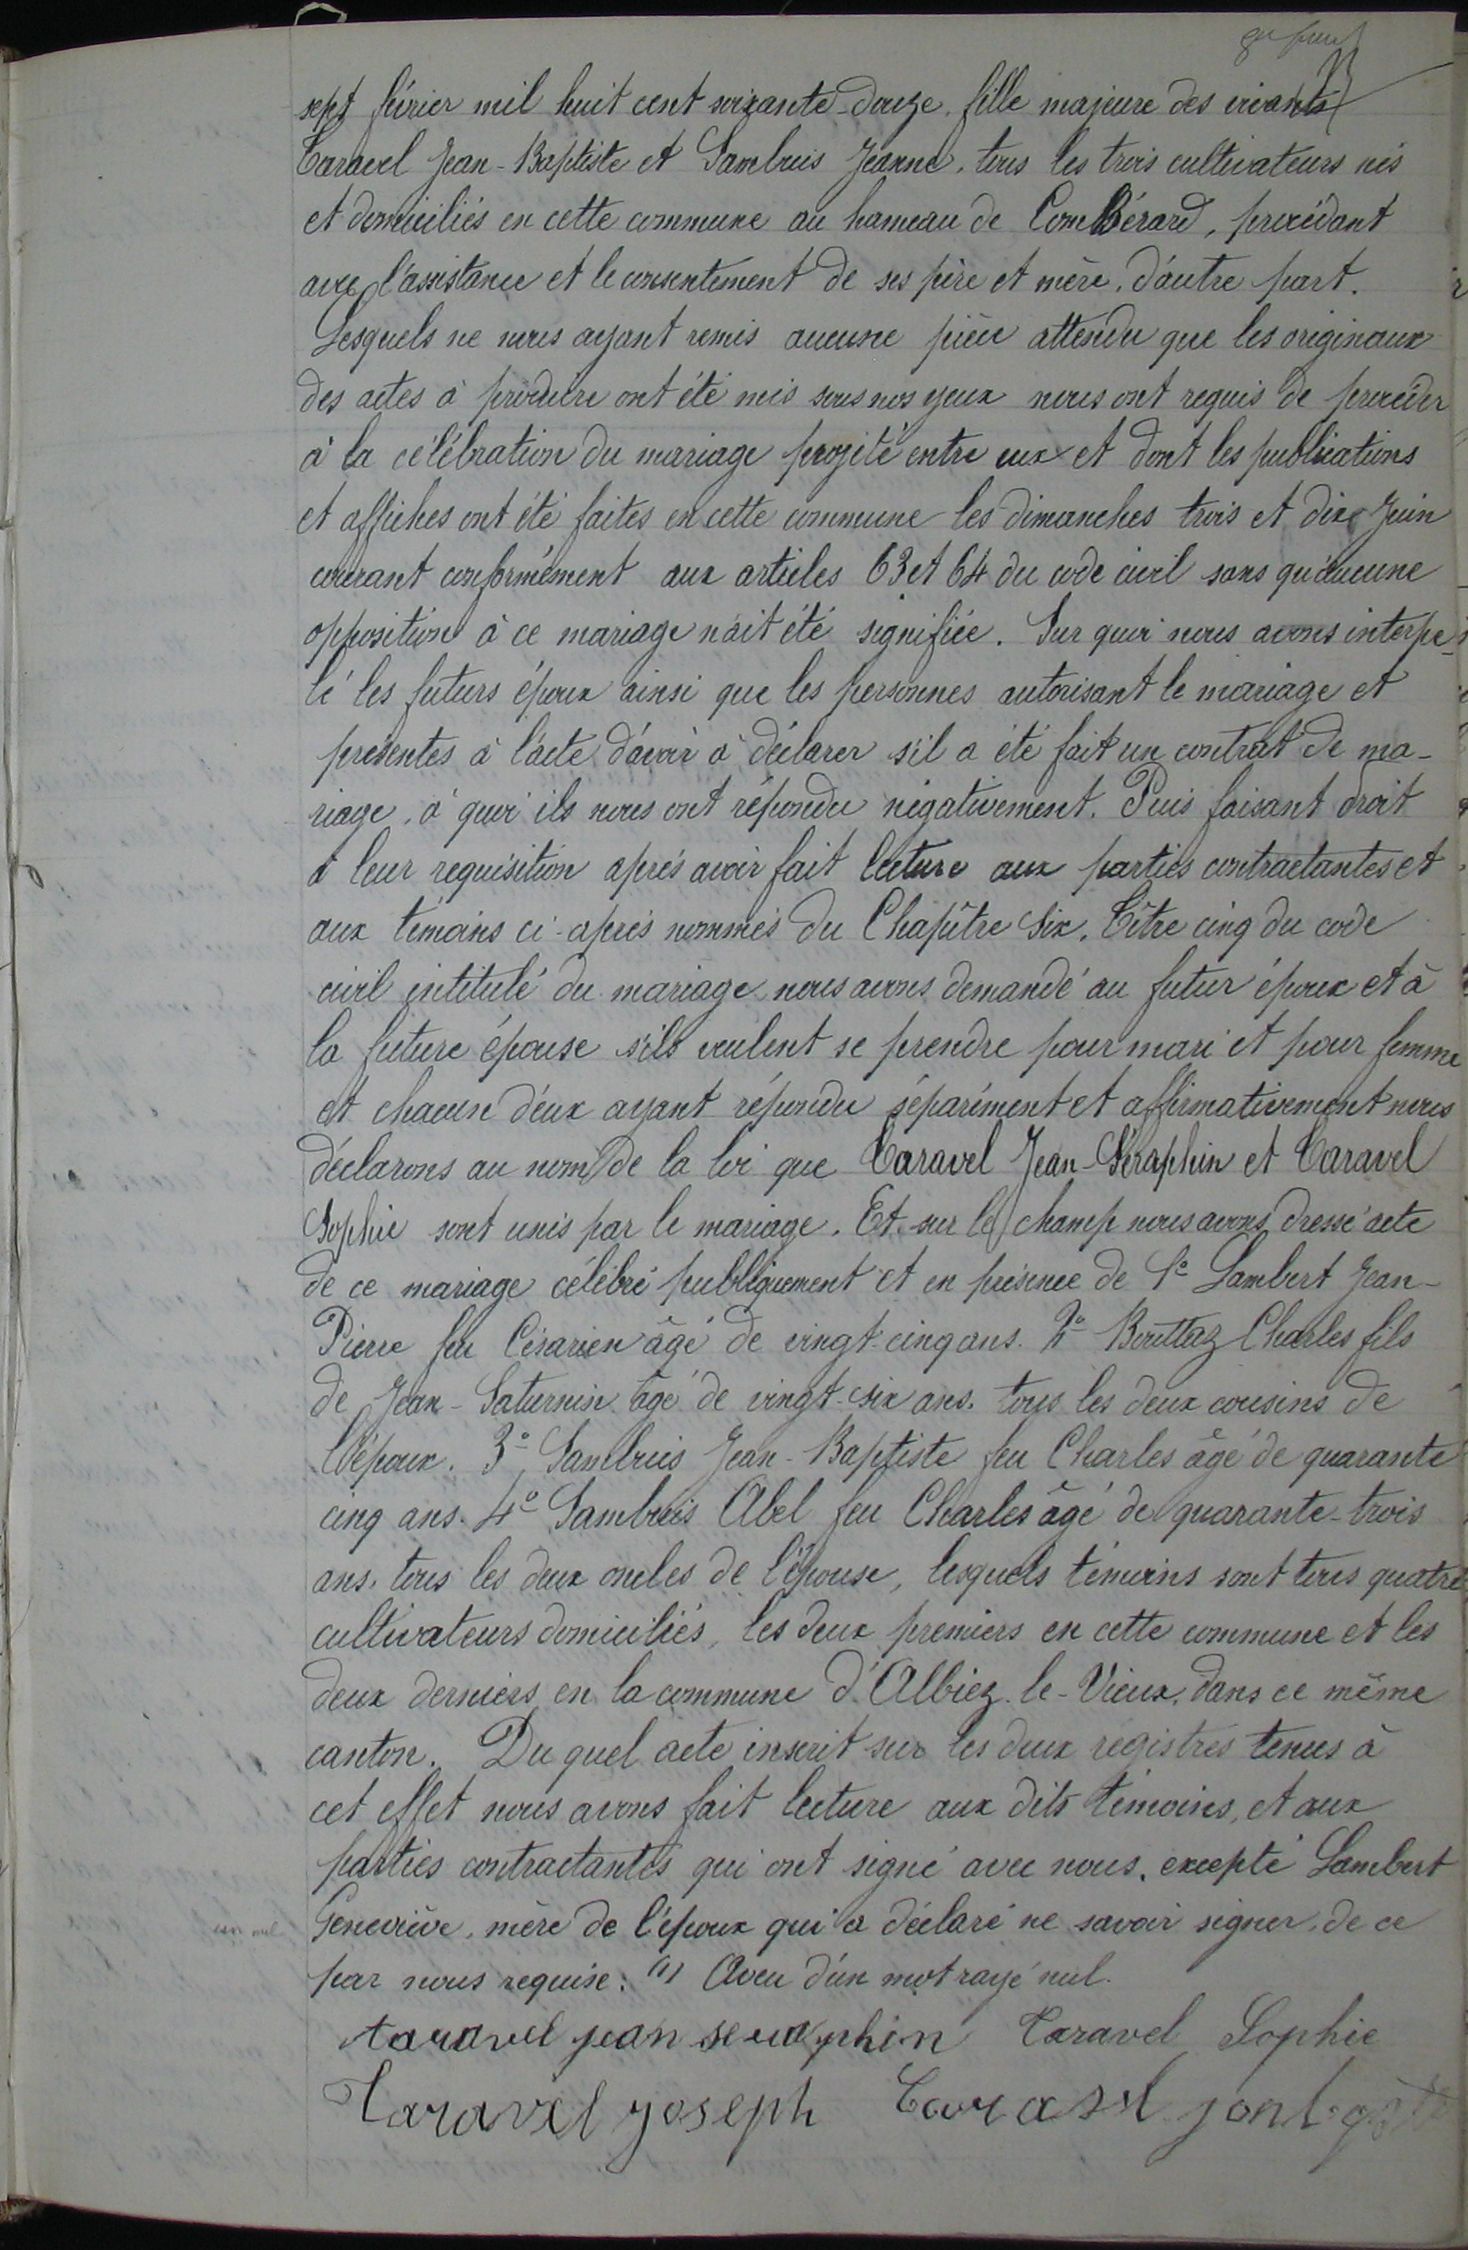 sept février mil huit cent soixante-douze, fille majeure des vivants
Taravel Jean-Baptiste et Sambuis Jeanne, tous les trois cultivateurs nés
et domiciliés en cette commune au hameau de ComBérard, procédant
avec l'assistance et le consentement de ses père et mère, d'autre part.
Lesquels ne nous ayant remis aucune pièce attendu que les originaux
des actes à produire ont été mis sous nos yeux nous ont requis de procéder
à la célébration du mariage projeté entre eux et dont les publications
et affiches ont été faites en cette commune les dimanches trois et dix Juin
courant conformément aux articles 63 et 64 du code civil sans qu'aucune
opposition à ce mariage n'ait été signifiée. Sur quoi nous avons interpe-
lé les futurs époux ainsi que les personnes autorisant le mariage et
présentes à l'acte d'avoir à déclarer s'il a été fait un contrat de ma-
riage, à quoi ils nous ont répondu négativement. Puis faisant droit
à leur requisition après avoir fait lecture aux parties contractantes et
aux témoins ci-après nommés du Chapître Six, Tître cinq du code
civil intitulé du mariage nous avons demandé au futur époux et à
la future épouse s'ils veulent se prendre pour mari et pour femme
et chacun d'eux ayant répondu séparément et affirmativement nous
déclarons au nom de la loi que Taravel Jean-Séraphin et Taravel
Sophie sont unis par le mariage. Et sur le champ nous avons dressé acte
de ce mariage célébré publiquement et en présence de 1° Lambert Jean-
Pierre feu Césarien âgé de vingt-cinq ans. 2° Bouttaz Charles fils
de Jean-Saturnin âgé de vingt-six ans. tous les deux cousins de
l'époux. 3° Sambuis Jean-Baptiste feu Charles âgé de quarante
cinq ans. 4° Sambuis Abel feu Charles âgé de quarante-trois
ans, tous les deux oncles de l'épouse, lesquels témoins sont tous quatre
cultivateurs domiciliés, les deux premiers en cette commune et les
deux derniers en la commune d'Albiez-le-Vieux, dans ce même
canton. Du quel acte inscrit sur les deux registres tenus à
cet effet nous avons fait lecture aux dits témoins, et aux
parties contractantes qui ont signé avec nous, excepté Lambert
Geneviève, mère de l'époux qui a déclaré ne savoir signer, de ce
par nous requise: (1) Aveu d'un mot rayé nul.
taravel jean seraphin Taravel Sophie
Taravel joseph Taravel